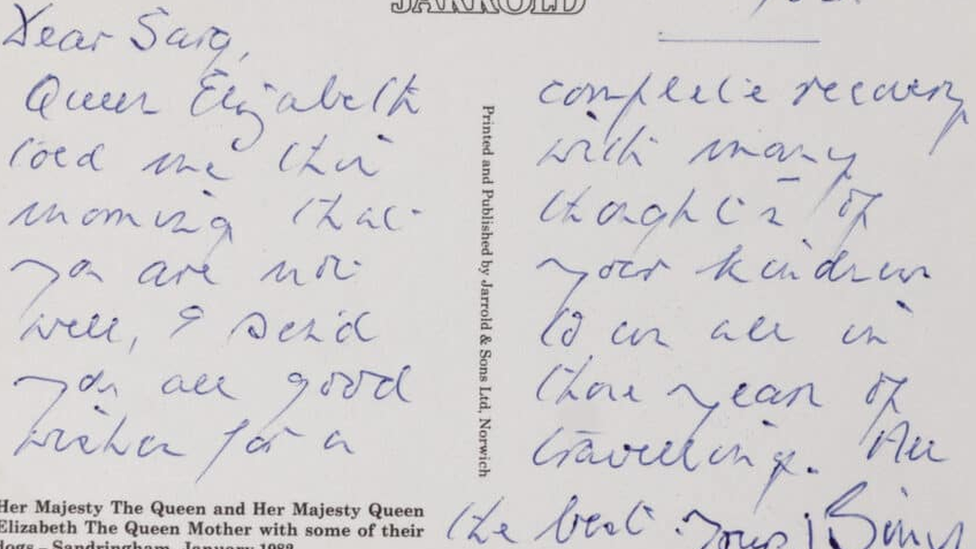 JARROLD
Dear Sarg,
Queen Elizabeth
told me this
morning that
you are not
well, I send
you all good
wishes for a
complete recovery
with many
thoughts of
your kindness
to us all in
those years of
travelling. All
the best. Yours,
Printed and Published by Jarrold & Sons Ltd, Norwich
Her Majesty The Queen and Her Majesty Queen
Elizabeth The Queen Mother with some of their
dogs – Sandringham, January 1982